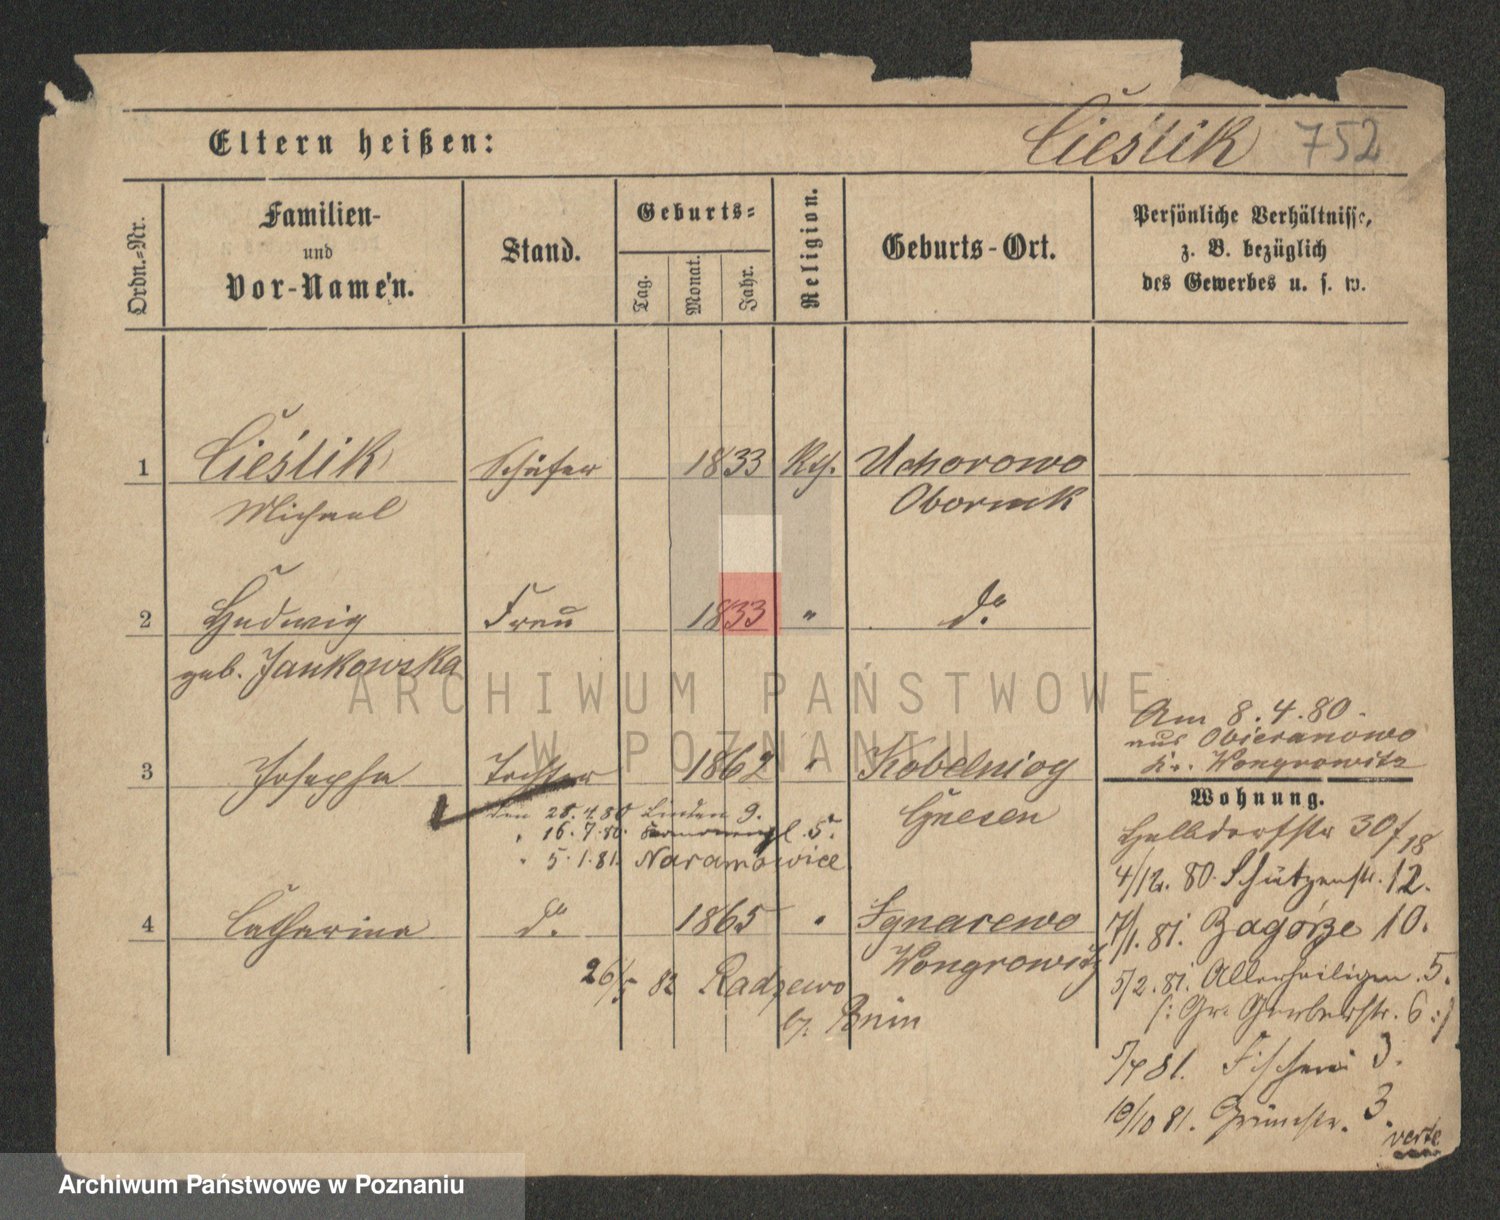 Eltern heißen: Cieślik 752
Ordn.-Nr.
Familien-
und
Vor-Namen.
Stand.
Geburts-
Tag.
Monat.
Jahr.
Religion.
Geburts-Ort.
Persönliche Verhältnisse,
z. B. bezüglich
des Gewerbes u. s. w.
1 Cieślik Schäfer 1833 Kth. Uchorowo
Michael Obornik
2 Hedwig Frau 1833 " do
geb. Jankowska
ARCHIWUM PAŃSTWOWE
W POZNANIU
Am 8.4.80.
aus Obieranowo
Kr. Wongrowitz
3 Josepha Tochter 1862 " Kobelniog
Gnesen
Wohnung.
Halbdorfstr 30/18
den 28.4.80 Linden 9.
" 16.7.80. 5.
" 5.1.81. Naramowice
4/12. 80. Schützenstr. 12.
4 Catharina do 1865 " Ignarewo
Wongrowitz
17/1. 81. Zagórze 10.
26/5 82 Radzewo
b/. Bnin
5/2. 81. Allerheiligen 5.
/: Gr. Gerberstr. 6 :/
5/4 81. Fischerei 3.
10/10 81. Grünestr. 3.
verte
Archiwum Państwowe w Poznaniu